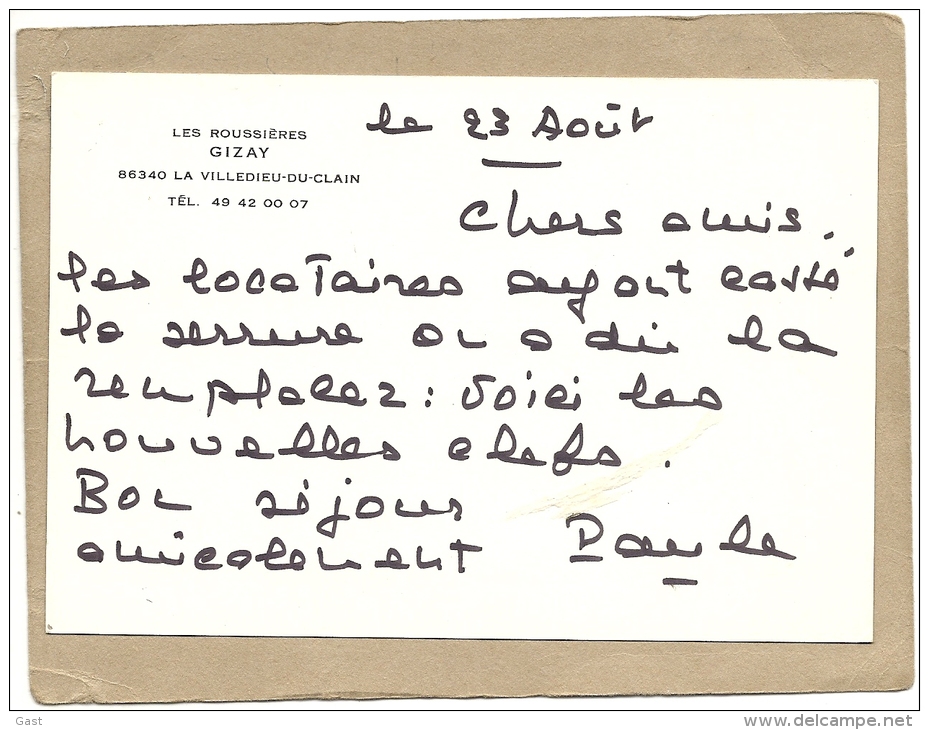 le 23 Août
LES ROUSSIÈRES
GIZAY
86340 LA VILLEDIEU-DU-CLAIN
TÉL. 49 42 00 07
Chers amis.
les locataires ayant cassé
la serrure on a dû la
remplacer : voici les
nouvelles clefs.
Bon séjour
amicalement Paule
Gast
www.delcampe.net